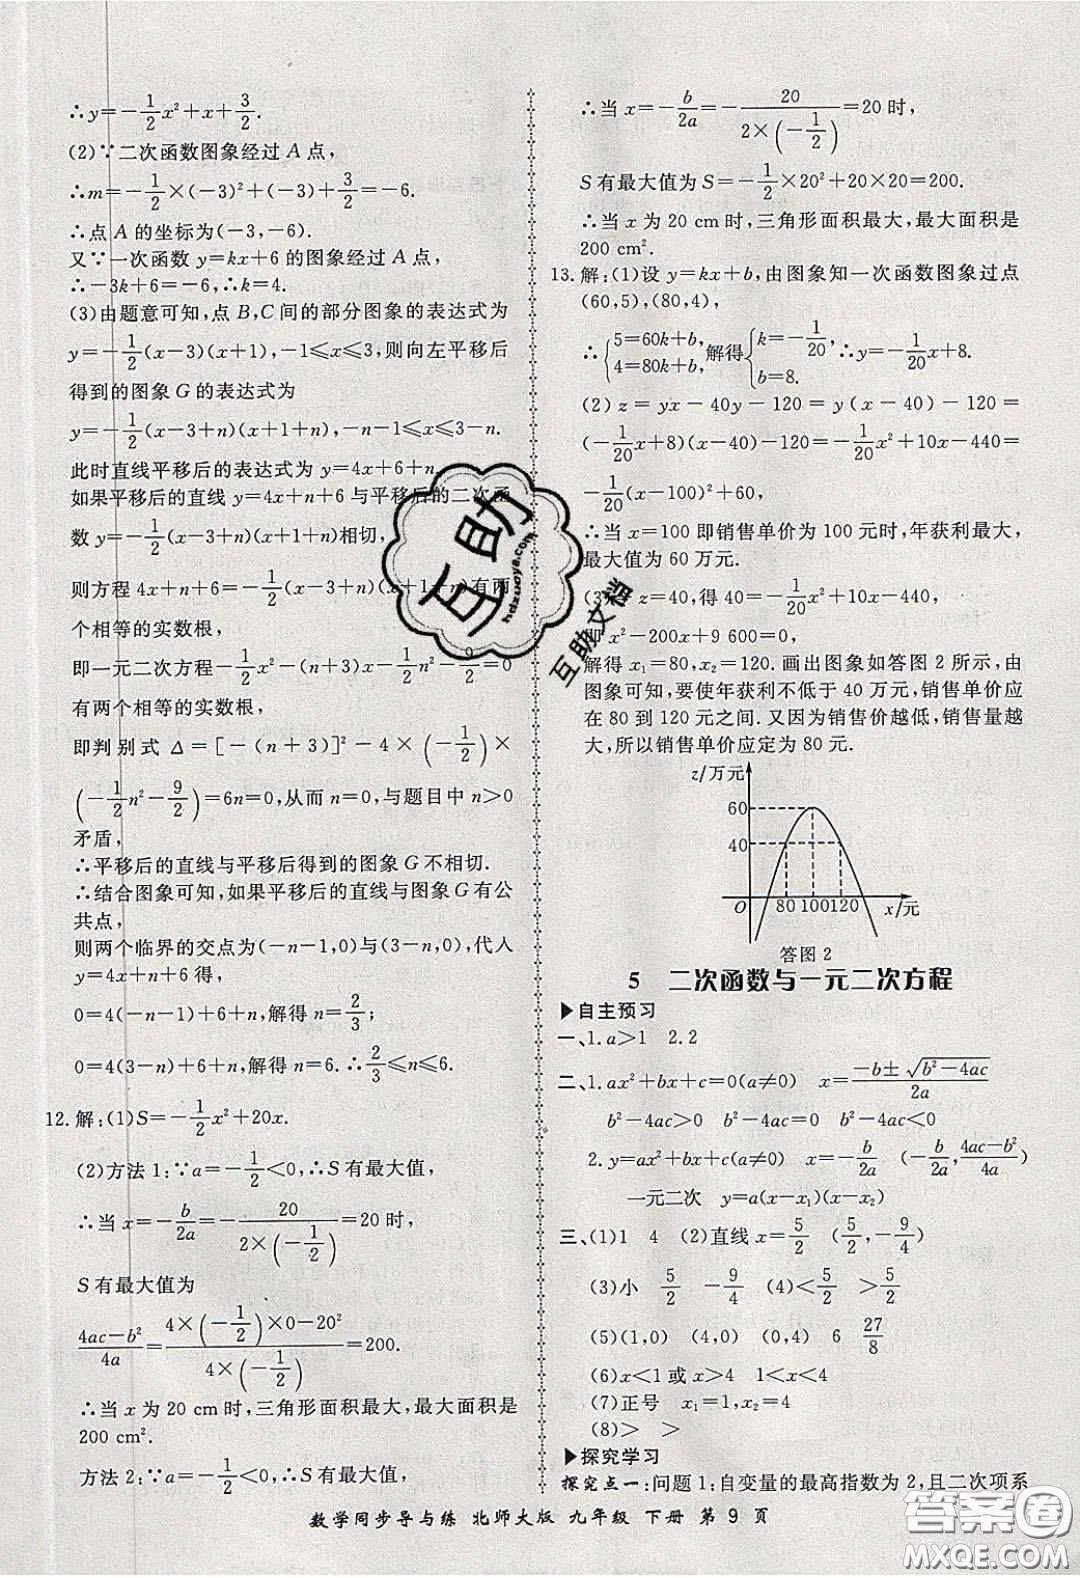 ∴y=-1/2x²+x+3/2.
(2)∵二次函数图象经过A点,
∴m=-1/2×(-3)²+(-3)+3/2=-6.
∴点A的坐标为(-3,-6).
又∵一次函数y=kx+6的图象经过A点,
∴-3k+6=-6,∴k=4.
(3)由题意可知,点B,C间的部分图象的表达式为
y=-1/2(x-3)(x+1),-1≤x≤3,则向左平移后
得到的图象G的表达式为
y=-1/2(x-3+n)(x+1+n),-n-1≤x≤3-n.
此时直线平移后的表达式为y=4x+6+n.
如果平移后的直线y=4x+6+n与平移后的二次函
数y=-1/2(x-3+n)(x+1+n)相切,
则方程4x+n+6=-1/2(x-3+n)(x+1+n)有两
个相等的实数根,
即一元二次方程-1/2x²-(n+3)x-1/2n²-9/2=0
有两个相等的实数根,
即判别式 Δ=[-(n+3)]²-4×(-1/2)×
(-1/2n²-9/2)=6n=0,从而n=0,与题目中n>0
矛盾,
∴平移后的直线与平移后得到的图象G不相切.
∴结合图象可知,如果平移后的直线与图象G有公
共点,
则两个临界的交点为(-n-1,0)与(3-n,0),代入
y=4x+n+6得,
0=4(-n-1)+6+n,解得n=2/3;
0=4(3-n)+6+n,解得n=6.∴2/3≤n≤6.
12.解:(1)S=-1/2x²+20x.
(2)方法1:∵a=-1/2<0,∴S有最大值,
∴当x=-b/2a=-20/(2×(-1/2))=20时,
S有最大值为
(4ac-b²)/4a=(4×(-1/2)×0-20²)/(4×(-1/2))=200.
∴当x为20 cm时,三角形面积最大,最大面积是
200 cm².
方法2:∵a=-1/2<0,∴S有最大值,
∴当x=-b/2a=-20/(2×(-1/2))=20时,
S有最大值为S=-1/2×20²+20×20=200.
∴当x为20 cm时,三角形面积最大,最大面积是
200 cm².
13.解:(1)设y=kx+b,由图象知一次函数图象过点
(60,5),(80,4),
∴{5=60k+b, 4=80k+b,解得{k=-1/20, b=8.∴y=-1/20x+8.
(2)z=yx-40y-120=y(x-40)-120=
(-1/20x+8)(x-40)-120=-1/20x²+10x-440=
-1/20(x-100)²+60,
∴当x=100即销售单价为100元时,年获利最大,
最大值为60万元.
(3) z=40,得40=-1/20x²+10x-440,
即x²-200x+9 600=0,
解得x₁=80,x₂=120.画出图象如答图2所示,由
图象可知,要使年获利不低于40万元,销售单价应
在80到120元之间.又因为销售价越低,销售量越
大,所以销售单价应定为80元.
z/万元
60
40
O 80 100 120 x/元
答图2
5 二次函数与一元二次方程
▶自主预习
一、1.a>1 2.2
二、1.ax²+bx+c=0(a≠0) x=(-b±√(b²-4ac))/2a
b²-4ac>0 b²-4ac=0 b²-4ac<0
2.y=ax²+bx+c(a≠0) x=-b/2a (-b/2a,(4ac-b²)/4a)
一元二次 y=a(x-x₁)(x-x₂)
三、(1)1 4 (2)直线x=5/2 (5/2,-9/4)
(3)小 5/2 -9/4 (4)<5/2 >5/2
(5)(1,0) (4,0) (0,4) 6 27/8
(6)x<1或x>4 1<x<4
(7)正号 x₁=1,x₂=4
(8)> >
▶探究学习
探究点一:问题1:自变量的最高指数为2,且二次项系
数学同步导与练 北师大版 九年级 下册 第9页
互助
hdzuoye.com
互助文档
答案圈
MXQE.COM